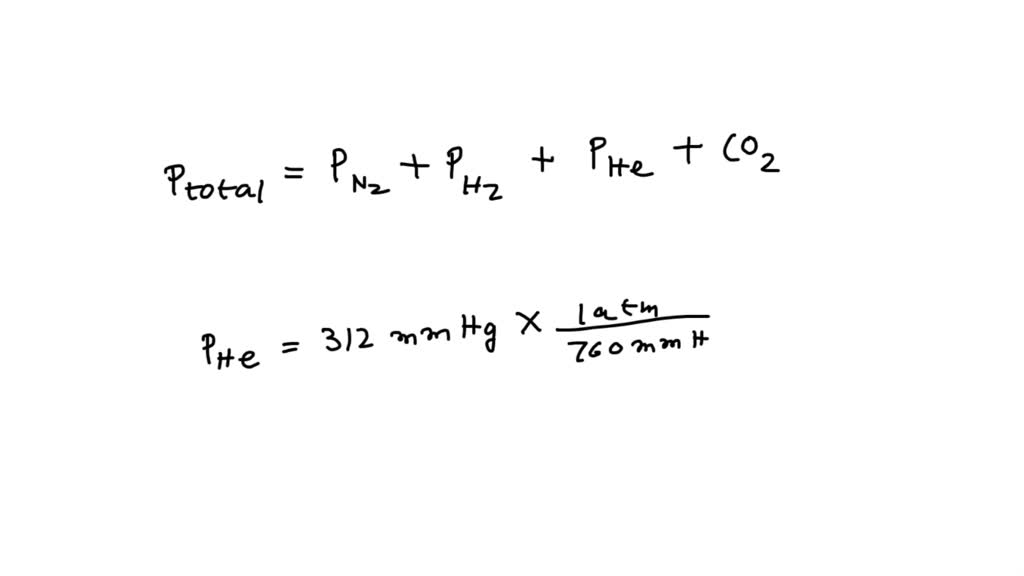 P_total = P_N2 + P_H2 + P_He + CO2
P_He = 312 mm Hg × 1 atm / 760 mm H